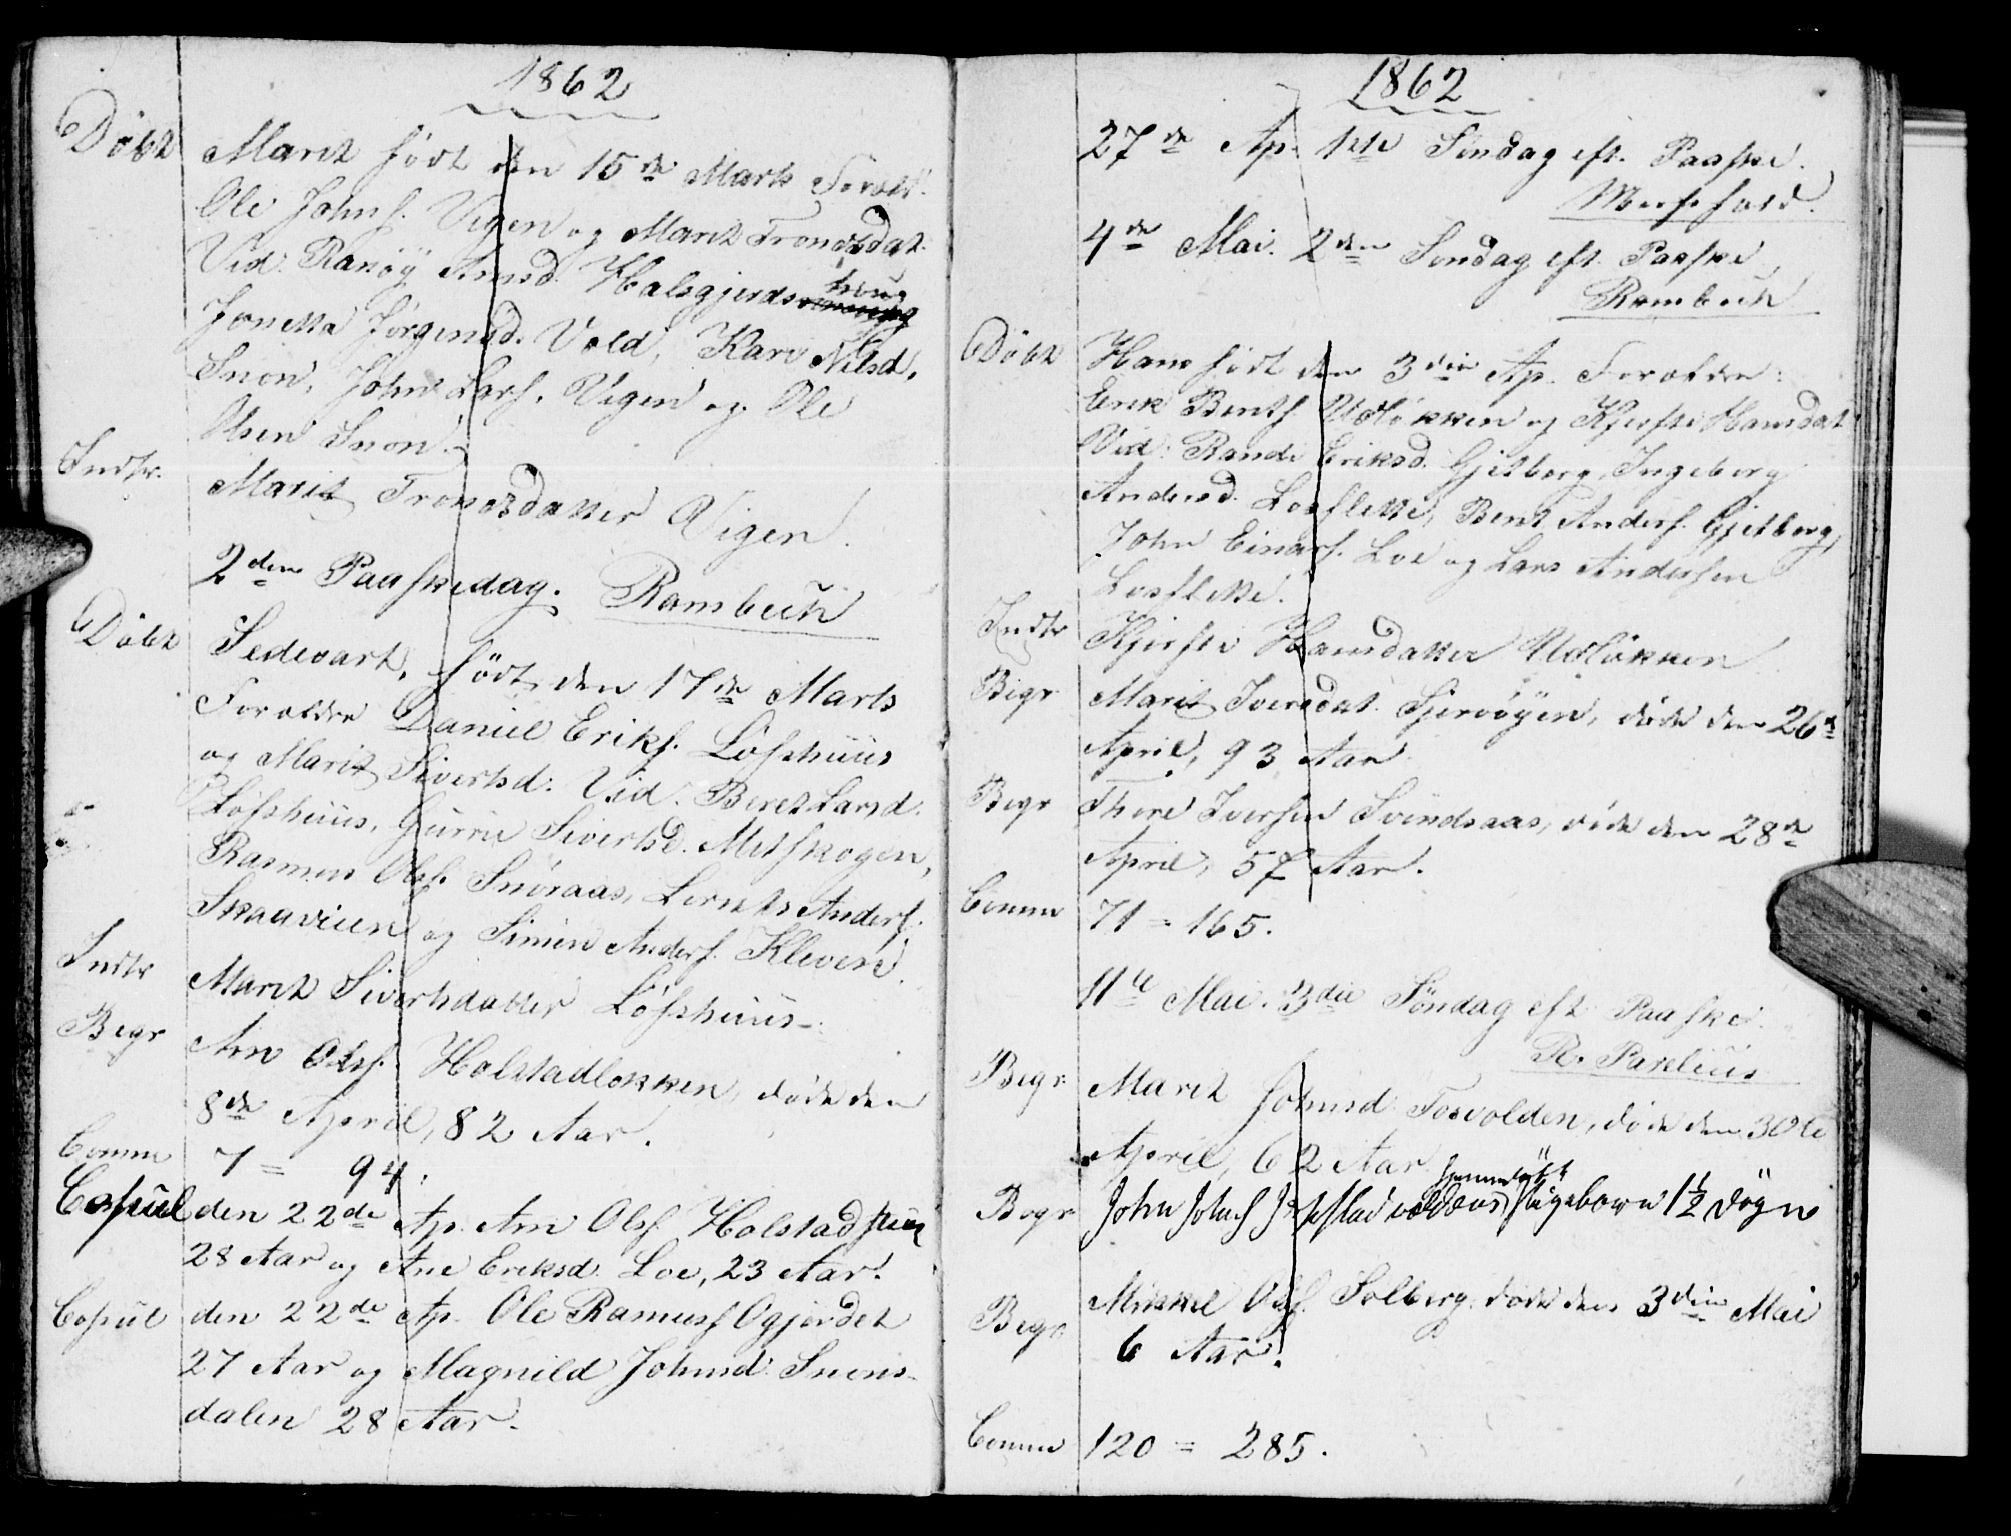 1862
Döbt Marit födt den 15de Marts Foræld:
Ole Johns. Vigen og Marit Trondsdat.
Vid: Ranöÿ Arnsd. Halsgjerdshaug
Jonetta Jörgensd. Vold, Kari Nilsd.
Snon, John Lars. Vigen og Ole
Olsen Snon.
Indtr. Marit Trondsdatter Vigen.
2den Paaskedag. Rambech
Döbt Sedevart, födt den 17de Marts
Forældre Daniel Eriks. Löfshuus
og Marit Sivertsd: Vid. Beret Larsd.
Löfshuus, Gurru Sivertsd. Melskogen,
Rasmus Ols. Snöraas, Lornts Anders.
Skaavien og Simen Anders. Kleven.
Indtr Marit Sivertsdatter Löfshuus.
Begr Arn Ols. Holstadlökken, döde den
8de April, 82 Aar.
Comm 7 = 94.
Copul den 22de Ap. Arn Ols. Holstad
28 Aar og Ane Eriksd. Loe, 23 Aar.
Copul den 22de Ap. Ole Rasmuss. Ogjerdet
27 Aar og Magnild Johnsd. Snens-
dalen 28 Aar.
1862
27de Ap. 1ste Söndag eft. Paaske.
Messefald.
4de Mai. 2den Söndag eft. Paaske
Rambech
Döbt Hans födt den 3die Ap. Forældre:
Erik Bents. Udlökken og Kjersti Hansdat
Vid: Randi Eriksd. Gjilberg, Ingeborg
Andersd. Losflette, Bent Anders. Gjelberg,
John Einars. Loe og Lars Andersen
Losflette.
Indtr Kjersti Hansdatter Udlökken
Begr Marit Iversdat. Sjervöyen, döde den 26de
April, 93 Aar
Begr Thore Iversen Svendsaas, döde den 28de
April, 57 Aar.
Comm 71 = 165.
11te Mai. 3die Söndag eft Paaske.
R. Parelius
Begr Marit Johnsd. Fosvolden, döde den 30te
April, 62 Aar
hjemmedöbt
Begr John Johns. 1½ Dögn
Begr Mikkel Ols. Solberg döde den 3die Mai
6 Aar.
Comm 120 = 285.